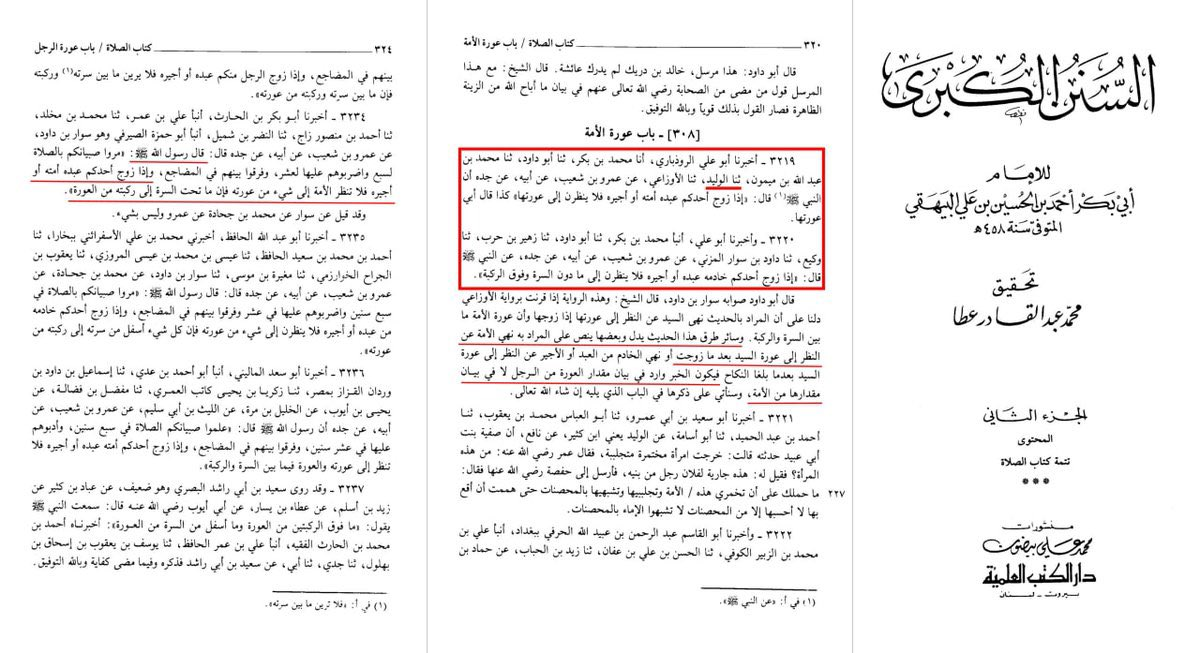 السنن الكبرى
للإمام
أبي بكر أحمد بن الحسين بن علي البيهقي
المتوفى سنة ٤٥٨ هـ
تحقيق
محمد عبد القادر عطا
الجزء الثاني
المحتوى
تتمة كتاب الصلاة
***
منشورات
محمد علي بيضون
دار الكتب العلمية
بيروت - لبنان
٣٢٠ كتاب الصلاة / باب عورة الأمة
قال أبو داود: هذا مرسل، خالد بن دريك لم يدرك عائشة. قال الشيخ: مع هذا
المرسل قول من مضى من الصحابة رضي الله تعالى عنهم في بيان ما أباح الله من الزينة
الظاهرة فصار القول بذلك قوياً وبالله التوفيق.
[٣٠٨] ـ باب عورة الأمة
٣٢١٩ ـ أخبرنا أبو علي الروذباري، أنا محمد بن بكر، ثنا أبو داود، ثنا محمد بن
عبد الله بن ميمون، ثنا الوليد، ثنا الأوزاعي، عن عمرو بن شعيب، عن أبيه، عن جده أن
النبي ﷺ(١) قال: «إذا زوج أحدكم عبده أمته أو أجيره فلا ينظرن إلى عورتها» كذا قال أبي
عورتها.
٣٢٢٠ ـ وأخبرنا أبو علي، أنبأ محمد بن بكر، ثنا أبو داود، ثنا زهير بن حرب، ثنا
وكيع، ثنا داود بن سوار المزني، عن عمرو بن شعيب، عن أبيه، عن جده، عن النبي ﷺ
قال: «إذا زوج أحدكم خادمه عبده أو أجيره فلا ينظرن إلى ما دون السرة وفوق الركبة».
قال أبو داود صوابه سوار بن داود، قال الشيخ: وهذه الرواية إذا قرنت برواية الأوزاعي
دلنا على أن المراد بالحديث نهي السيد عن النظر إلى عورتها إذا زوجها وأن عورة الأمة ما
بين السرة والركبة. وسائر طرق هذا الحديث يدل وبعضها ينص على المراد به نهي الأمة عن
النظر إلى عورة السيد بعد ما زوجت أو نهي الخادم من العبد أو الأجير عن النظر إلى عورة
السيد بعدما بلغا النكاح فيكون الخبر وارد في بيان مقدار العورة من الرجل لا في بيان
مقدارها من الأمة، وسنأتي على ذكرها في الباب الذي يليه إن شاء الله تعالى.
٣٢٢١ ـ أخبرنا أبو سعيد بن أبي عمرو، ثنا أبو العباس محمد بن يعقوب، ثنا
أحمد بن عبد الحميد، ثنا أبو أسامة، عن الوليد يعني ابن كثير، عن نافع، أن صفية بنت
أبي عبيد حدثته قالت: خرجت امرأة مختمرة متجلببة، فقال عمر رضي الله عنه: من هذه
المرأة؟ فقيل له: هذه جارية لفلان رجل من بنيه، فأرسل إلى حفصة رضي الله عنها فقال:
٢٢٧ ما حملك على أن تخمري هذه / الأمة وتجلببيها وتشبهيها بالمحصنات حتى هممت أن أقع
بها لا أحسبها إلا من المحصنات لا تشبهوا الإماء بالمحصنات.
٣٢٢٢ ـ وأخبرنا أبو القاسم عبد الرحمن بن عبيد الله الحرفي ببغداد، أنبأ علي بن
محمد بن الزبير الكوفي، ثنا الحسن بن علي بن عفان، ثنا زيد بن الحباب، عن حماد بن
(١) في أ: «عن النبي ﷺ».
٣٢٤ كتاب الصلاة / باب عورة الرجل
بينهم في المضاجع، وإذا زوج الرجل منكم عبده أو أجيره فلا يرين ما بين سرته(١) وركبته
فإن ما بين سرته وركبته من عورته».
٣٢٣٤ ـ أخبرنا أبو بكر بن الحارث، أنبأ علي بن عمر، ثنا محمد بن مخلد،
ثنا أحمد بن منصور زاج، ثنا النضر بن شميل، أنبأ أبو حمزة الصيرفي وهو سوار بن داود،
عن عمرو بن شعيب، عن أبيه، عن جده قال: قال رسول الله ﷺ: «مروا صبيانكم بالصلاة
لسبع واضربوهم عليها لعشر، وفرقوا بينهم في المضاجع، وإذا زوج أحدكم عبده أمته أو
أجيره فلا تنظر الأمة إلى شيء من عورته فإن ما تحت السرة إلى ركبته من العورة».
وقد قيل عن سوار عن محمد بن جحادة عن عمرو وليس بشيء.
٣٢٣٥ ـ أخبرنا أبو عبد الله الحافظ، أخبرني محمد بن علي الأسفرائني ببخارا، ثنا
أحمد بن محمد بن سعيد الحافظ، ثنا عيسى بن محمد بن عيسى المروزي، ثنا يعقوب بن
الجراح الخوارزمي، ثنا مغيرة بن موسى، ثنا سوار بن داود، عن محمد بن جحادة، عن
عمرو بن شعيب، عن أبيه، عن جده قال: قال رسول الله ﷺ: «مروا صبيانكم بالصلاة في
سبع سنين واضربوهم عليها في عشر وفرقوا بينهم في المضاجع، وإذا زوج أحدكم خادمه
من عبده أو أجيره فلا ينظرن إلى شيء من عورته فإن كل شيء أسفل من سرته إلى ركبته من
عورته».
٣٢٣٦ ـ أخبرنا أبو سعد الماليني، أنبأ أبو أحمد بن عدي، ثنا إسماعيل بن داود بن
وردان القزاز بمصر، ثنا زكريا بن يحيى كاتب العمري، ثنا مفضل بن فضالة، عن
يحيى بن أيوب، عن الخليل بن مرة، عن الليث بن أبي سليم، عن عمرو بن شعيب، عن
أبيه، عن جده أن رسول الله ﷺ قال: «علموا صبيانكم الصلاة في سبع سنين، وأدبوهم
عليها في عشر سنين، وفرقوا بينهم في المضاجع، وإذا زوج أحدكم عبده أمته أو أجيره فلا
تنظر إلى عورته والعورة فيما بين السرة والركبة».
٣٢٣٧ ـ وقد روى سعيد بن أبي راشد البصري وهو ضعيف، عن عباد بن كثير عن
زيد بن أسلم، عن عطاء بن يسار، عن أبي أيوب رضي الله عنه قال: سمعت النبي ﷺ
يقول: «ما فوق الركبتين من العورة وما أسفل من السرة من العورة»: أخبرناه أحمد بن
محمد بن الحارث الفقيه، أنبأ علي بن عمر الحافظ، ثنا يوسف بن يعقوب بن إسحاق بن
بهلول، ثنا جدي، ثنا أبي، عن سعيد بن أبي راشد فذكره وفيما مضى كفاية وبالله التوفيق.
(١) في أ: «فلا ترين ما بين سرته».